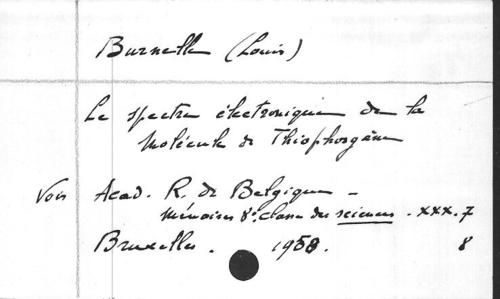 Burnelle (Louis)
Le spectre électronique de la
molécule de Thiophosgène
Voir Acad. R. de Belgique –
Mémoires 8° classe des sciences. XXX. 7
Bruxelles. 1958. 8